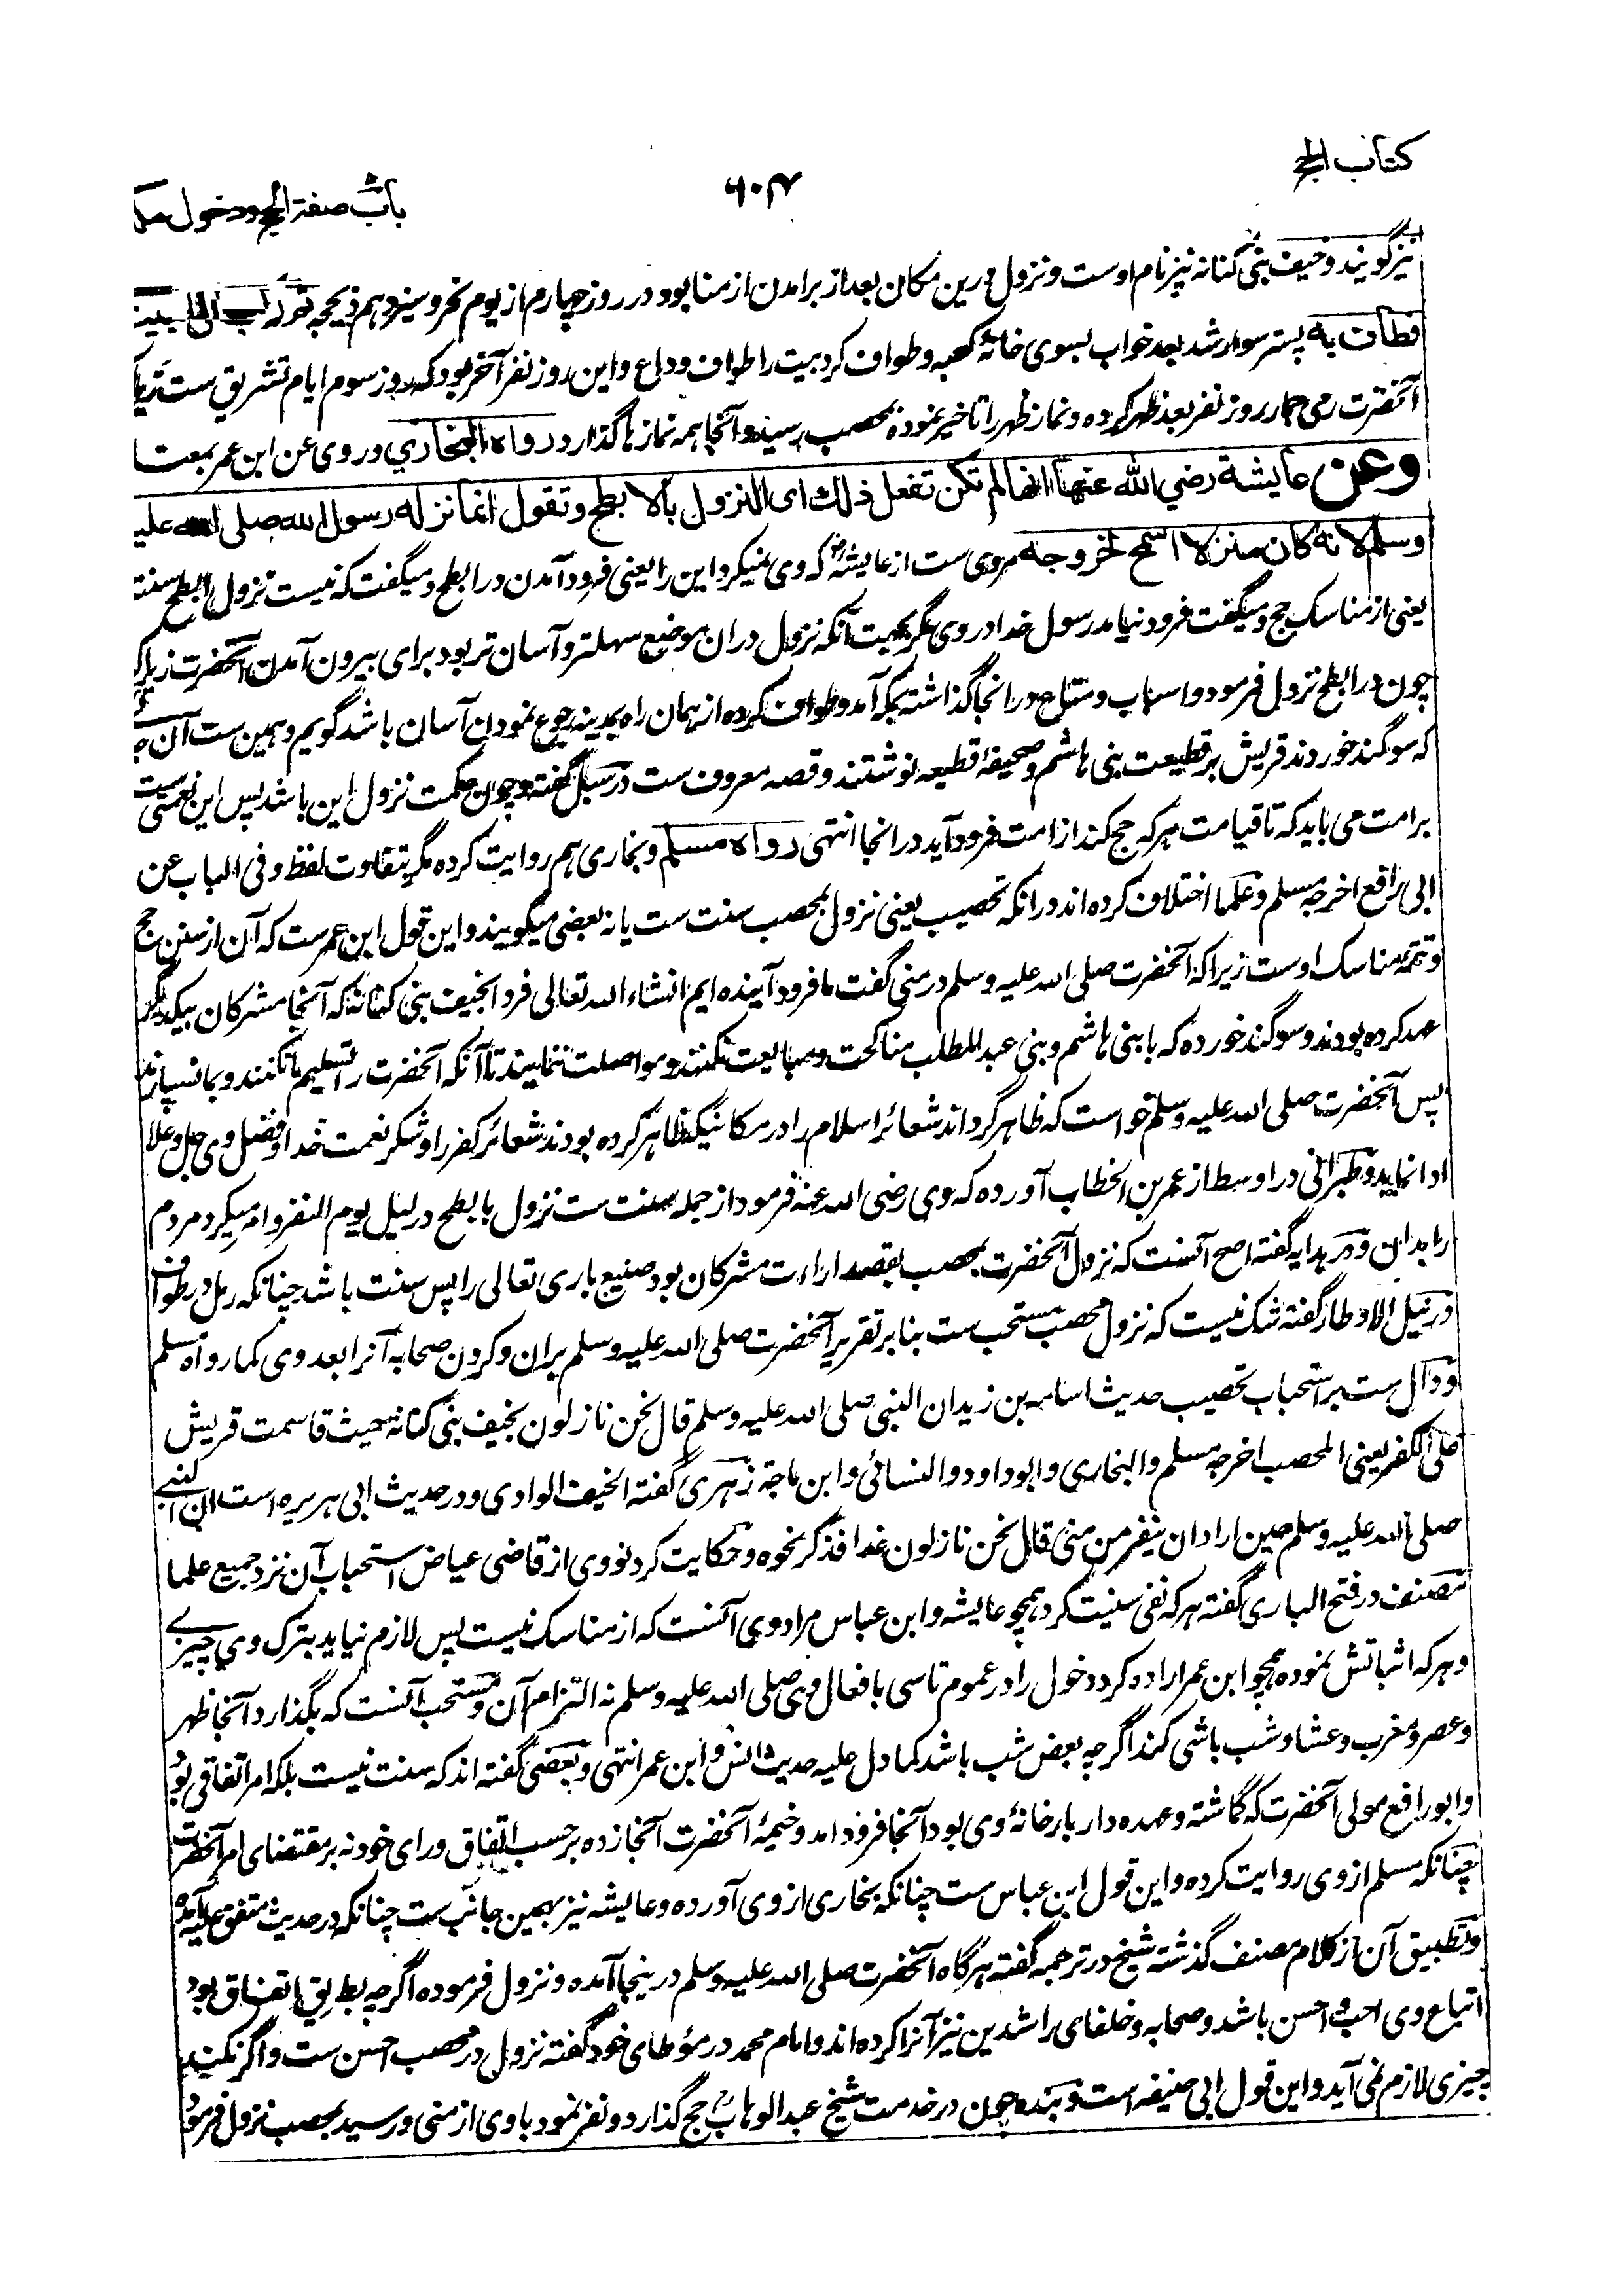 کتاب الحج
۶۰۴
باب صفة الحج ودخول مکه
نیز گویند و خیف بنی کنانه نیز نام اوست و نزول درین مکان بعد از برامدن از منا بود در روز چهارم از یوم نحر و سیزدهم ذیحجه ثم رکب الی البیت
فطاف به پستر سوار شد بعد خواب بسوی خانهٔ کعبه و طواف کرد بیت را طواف وداع و این روز نفر آخر بود که روز سوم ایام تشریق ست
آنحضرت رمی جمار بروز نفر بعد ظهر کرده و نماز ظهر را تاخیر نموده بمحصب رسید و آنجا همه نمازها گذارد رواه البخاري و روی عن ابن عمر بمعناه
وعن عايشة رضي الله عنها انها لم تكن تفعل ذلك اى النزول بالابطح وتقول انما نزله رسول الله صلى الله عليه
وسلم لانه كان منزلا اسمح لخروجه مروی ست از عایشه رض که وی نمیکرد این را یعنی فرود آمدن در ابطح و میگفت که نیست نزول ابطح سنت
یعنی از مناسک حج و میگفت فرود نیامد رسول خدا در وی مگر بجهت آنکه نزول دران موضع سهلتر و آسان تر بود برای بیرون آمدن آنحضرت زیراکه
چون در ابطح نزول فرمود و اسباب و متاع در انجا گذاشته بمکه آمد و طواف کرده از همان راه بمدینه رجوع نمودن آسان باشد گویم و همین ست آن
که سوگند خوردند قریش بر قطیعت بنی هاشم و صحیفهٔ قطیعه نوشتند و قصه معروف ست در سبل گفته و چون حکمت نزول این باشد پس این نعمتی ست
برامت می باید که تا قیامت هر که حج کند از امت فرود آید در انجا انتهی رواه مسلم و بخاری هم روایت کرده مگر بتفاوت لفظ و فی الباب عن
ابی رافع اخرجه مسلم و علما اختلاف کرده اند در انکه تحصیب یعنی نزول بمحصب سنت ست یا نه بعضی میگویند و این قول ابن عمر ست که آن از سنن حج
و تتمهٔ مناسک اوست زیرا که آنحضرت صلی الله علیه وسلم در منی گفت ما فرود آینده ایم انشاء الله تعالی فردا بخیف بنی کنانه که آنجا مشرکان بیکدیگر
عهد کرده بودند و سوگند خورده که با بنی هاشم و بنی عبدالمطلب مناکحت و مبایعت نکنند و مواصلت ننمایند تا آنکه آنحضرت را تسلیم ما نکنند و بما نسپارند
پس آنحضرت صلی الله علیه وسلم خواست که ظاهر گرداند شعائر اسلام را در مکانیکه ظاهر کرده بودند شعائر کفر را و شکر نعمت خدا و فضل وی جل و علا
ادا نماید و طبرانی در اوسط از عمر بن الخطاب آورده که وی رضی الله عنه فرمود از جمله سنت ست نزول بابطح در لیل یوم النفر و امر میکرد مردم
را بدان و در هدایه گفته اصح آنست که نزول آنحضرت بمحصب بقصد اراءت مشرکان بود صنیع باری تعالی را پس سنت باشد چنانکه رمل در طواف
در نیل الاوطار گفته شک نیست که نزول محصب مستحب ست بنا بر تقریر آنحضرت صلی الله علیه وسلم بران و کردن صحابه آنرا بعد وی کما رواه مسلم
و دال ست بر استحباب تحصیب حدیث اسامه بن زید ان النبی صلی الله علیه وسلم قال نحن نازلون بخیف بنی کنانه حیث قاسمت قریش
علی الکفر یعنی المحصب اخرجه مسلم والبخاری وابوداود والنسائی وابن ماجة زهری گفته الخیف الوادی و در حدیث ابی هریره است ان النبی
صلی الله علیه وسلم حین اراد ان ینفر من منی قال نحن نازلون غدا فذکر نحوه و حکایت کرد نووی از قاضی عیاض استحباب آن نزد جمیع علما
مصنف در فتح الباری گفته هر که نفی سنیت کرد همچو عایشه و ابن عباس مراد وی آنست که از مناسک نیست پس لازم نیاید بترک وی چیزے
و هر که اثباتش نموده همچو ابن عمر اراده کرد دخول را در عموم تاسی بافعال وی صلی الله علیه وسلم نه التزام آن و مستحب آنست که بگذارد آنجا ظهر
و عصر و مغرب و عشا و شب باشی کند اگر چه بعض شب باشد کما دل علیه حدیث انس و ابن عمر انتهی و بعضی گفته اند که سنت نیست بلکه امر اتفاقی بود
و ابو رافع مولی آنحضرت که گماشته و عهده دار بارخانهٔ وی بود آنجا فرود امد و خیمهٔ آنحضرت آنجا زده بر حسب اتفاق و رای خود نه بر مقتضای امر آنحضرت
چنانکه مسلم از وی روایت کرده و این قول ابن عباس ست چنانکه بخاری از وی آورده و عایشه نیز بهمین جانب ست چنانکه در حدیث متفق علیه آمده
و تطبیق آن از کلام مصنف گذشته شیخ در ترجمه گفته هر گاه آنحضرت صلی الله علیه وسلم در ینجا آمده و نزول فرموده اگر چه بطریق اتفاق بود
اتباع وی احب و احسن باشد و صحابه و خلفای راشدین نیز آنرا کرده اند و امام محمد در مؤطای خود گفته نزول در محصب احسن ست و اگر نکند
چیزی لازم نمی آید و این قول ابی حنیفه است و بنده چون در خدمت شیخ عبدالوهاب حج گذارد و نفر نمود با وی از منی و رسید بمحصب نزول فرمود